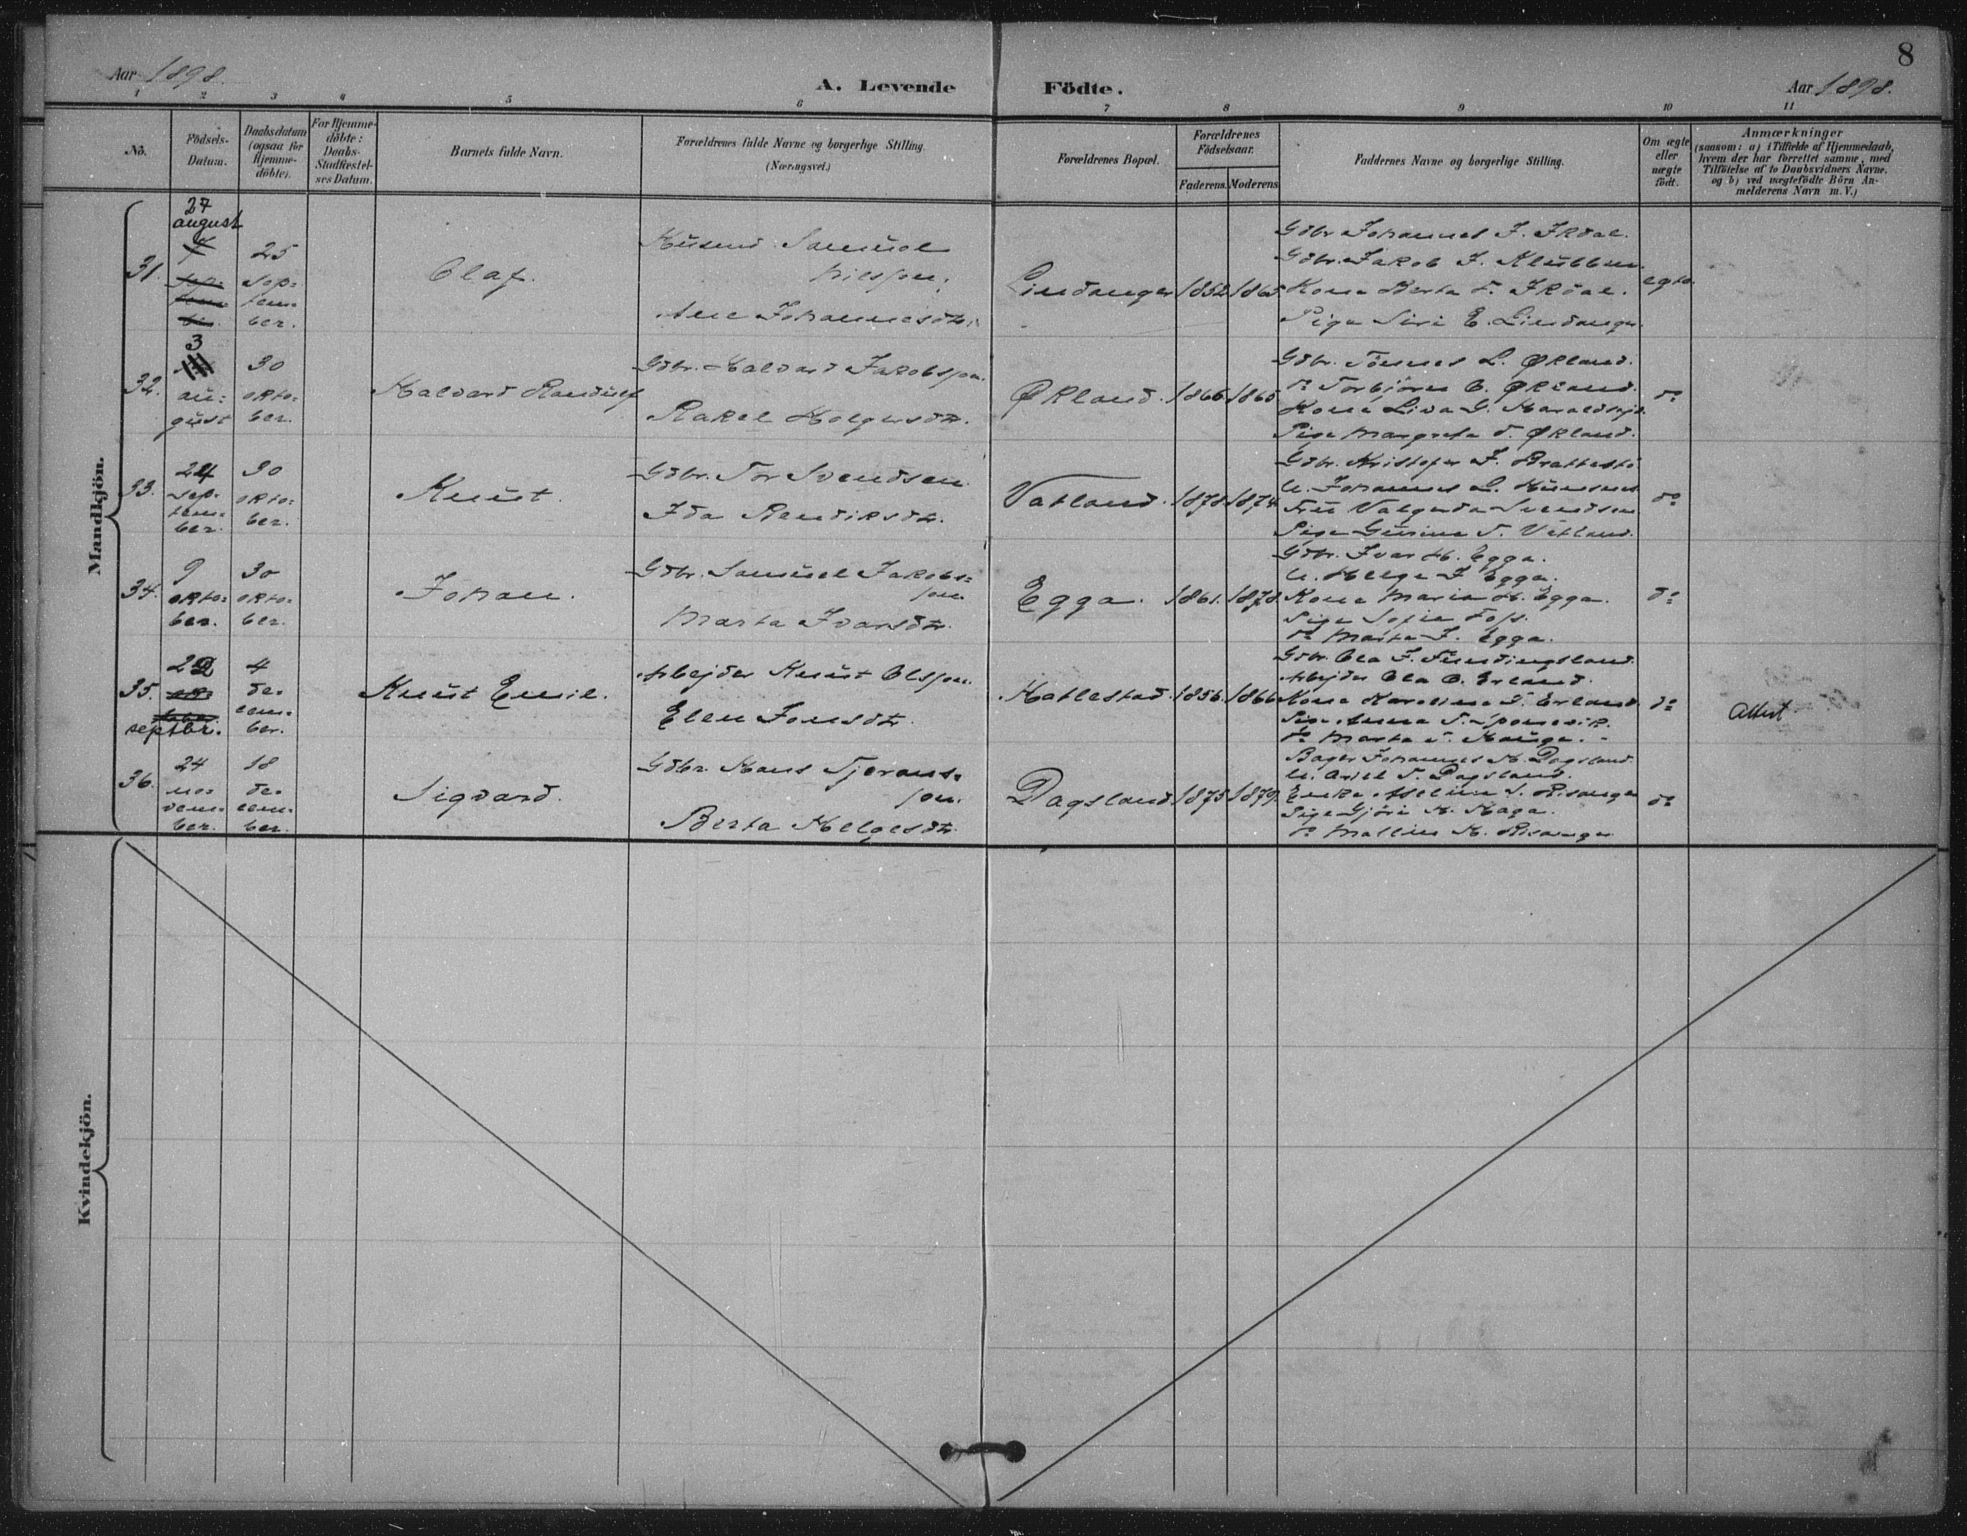 8
Aar 1898.
A. Levende Födte.
Aar 1898.
1 2 3 4 5 6 7 8 9 10 11
No.
Födsels-
Datum.
Daabsdatum
(ogsaa for
Hjemme-
döbte).
For Hjemme-
döbte:
Daabs-
Stadfæstel-
ses Datum.
Barnets fulde Navn.
Forældrenes fulde Navne og borgerlige Stilling.
(Næringsvei.)
Forældrenes Bopæl.
Forældrenes
Födselsaar.
Faderens. Moderens.
Faddernes Navne og borgerlige Stilling.
Om ægte
eller
uægte
födt.
Anmærkninger
(saasom: a) i Tilfælde af Hjemmedaab,
hvem der har forrettet samme, med
Tilföielse af to Daabsvidners Navne,
og b) ved uægtefödte Börn An-
melderens Navn m. V.)
Mandkjön.
31.
27
august
7
sep-
tem-
ber.
25
sep-
tem-
ber.
Olaf.
Husmd. Samuel
Nilsson,
Ane Johannesdtr.
Lindanger
1852
1865
Gdbr. Johannes J.
Gdbr. Jakob J. Klubben.
Kone Berta
Pige Siri E. Lindanger
egte
32.
3
au-
gust
30
okto-
ber.
Halvard Randulf
Gdbr. Halvard Jakobsson.
Rakel Holgersdtr.
Økland.
1866
1865
Gdbr. Tönnes L. Økland.
do Torbjörn O. Økland.
Kone Liva G.
Pige Margreta T. Økland.
do
33.
24
sep-
tem-
ber.
30
okto-
ber.
Knut.
Gdbr. Tor Svendsen
Ida Rendiksdtr.
Vatland.
1878
1874
Gdbr. Kristofer J. Brattestö
U. Johannes L.
Valgerda Svendsen
Pige Gurine T. Vatland.
do
34.
9
okto-
ber.
30
okto-
ber.
Johan.
Gdbr. Samuel Jakobs-
son.
Marta Ivarsdtr.
Egga.
1861.
1878.
Gdbr. Ivar H. Egga.
U. Helge I. Egga.
Kone Maria H. Egga.
Pige Sofie Foss.
do Marta I. Egga.
do
35.
22
septbr.
4
de-
cem-
ber.
Knut Emil.
Arbejder Knut Olsson.
Elen Jonsdtr.
Hatlestad.
1856.
1866
Gdbr. Ola J.
Arbejder Ola O. Erland.
Kone Karoline T. Erland
Pige Anna T.
do Marta T. Hauge.
do
Attest
36.
24
no-
vem-
ber.
18
de-
cem-
ber.
Sigvard.
Gdbr. Hans Tjerans-
son.
Berta Helgesdtr.
Dagsland
1875
1879.
Bager Johannes H. Dagsland.
U. Ariel T. Dagsland.
Enke Aseline S. Risanger
Pige Gjöri H. Haga.
do Malline H. Risanger
do
Kvindekjön.